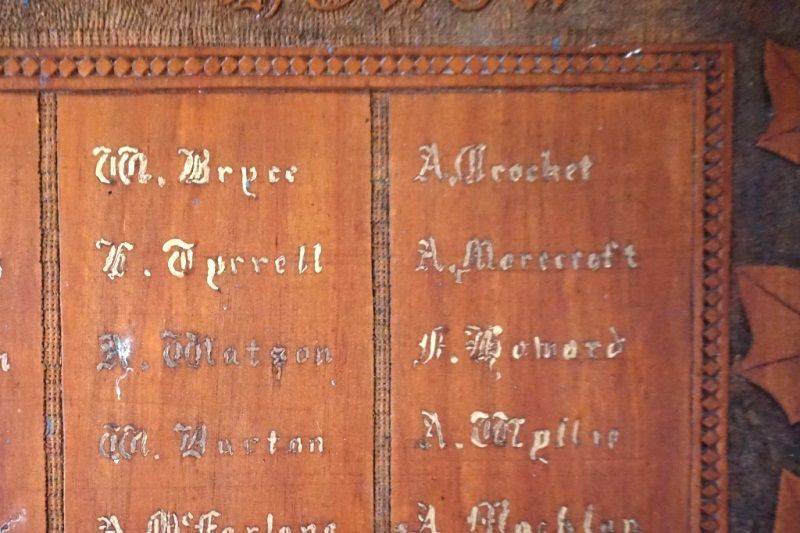 W. Bryce
F. Tyrrell
N. Watson
W. Burton
A. McFarlane
A. Crocket
A. Morecroft
F. Howard
A. Wyllie
A. Mochlan